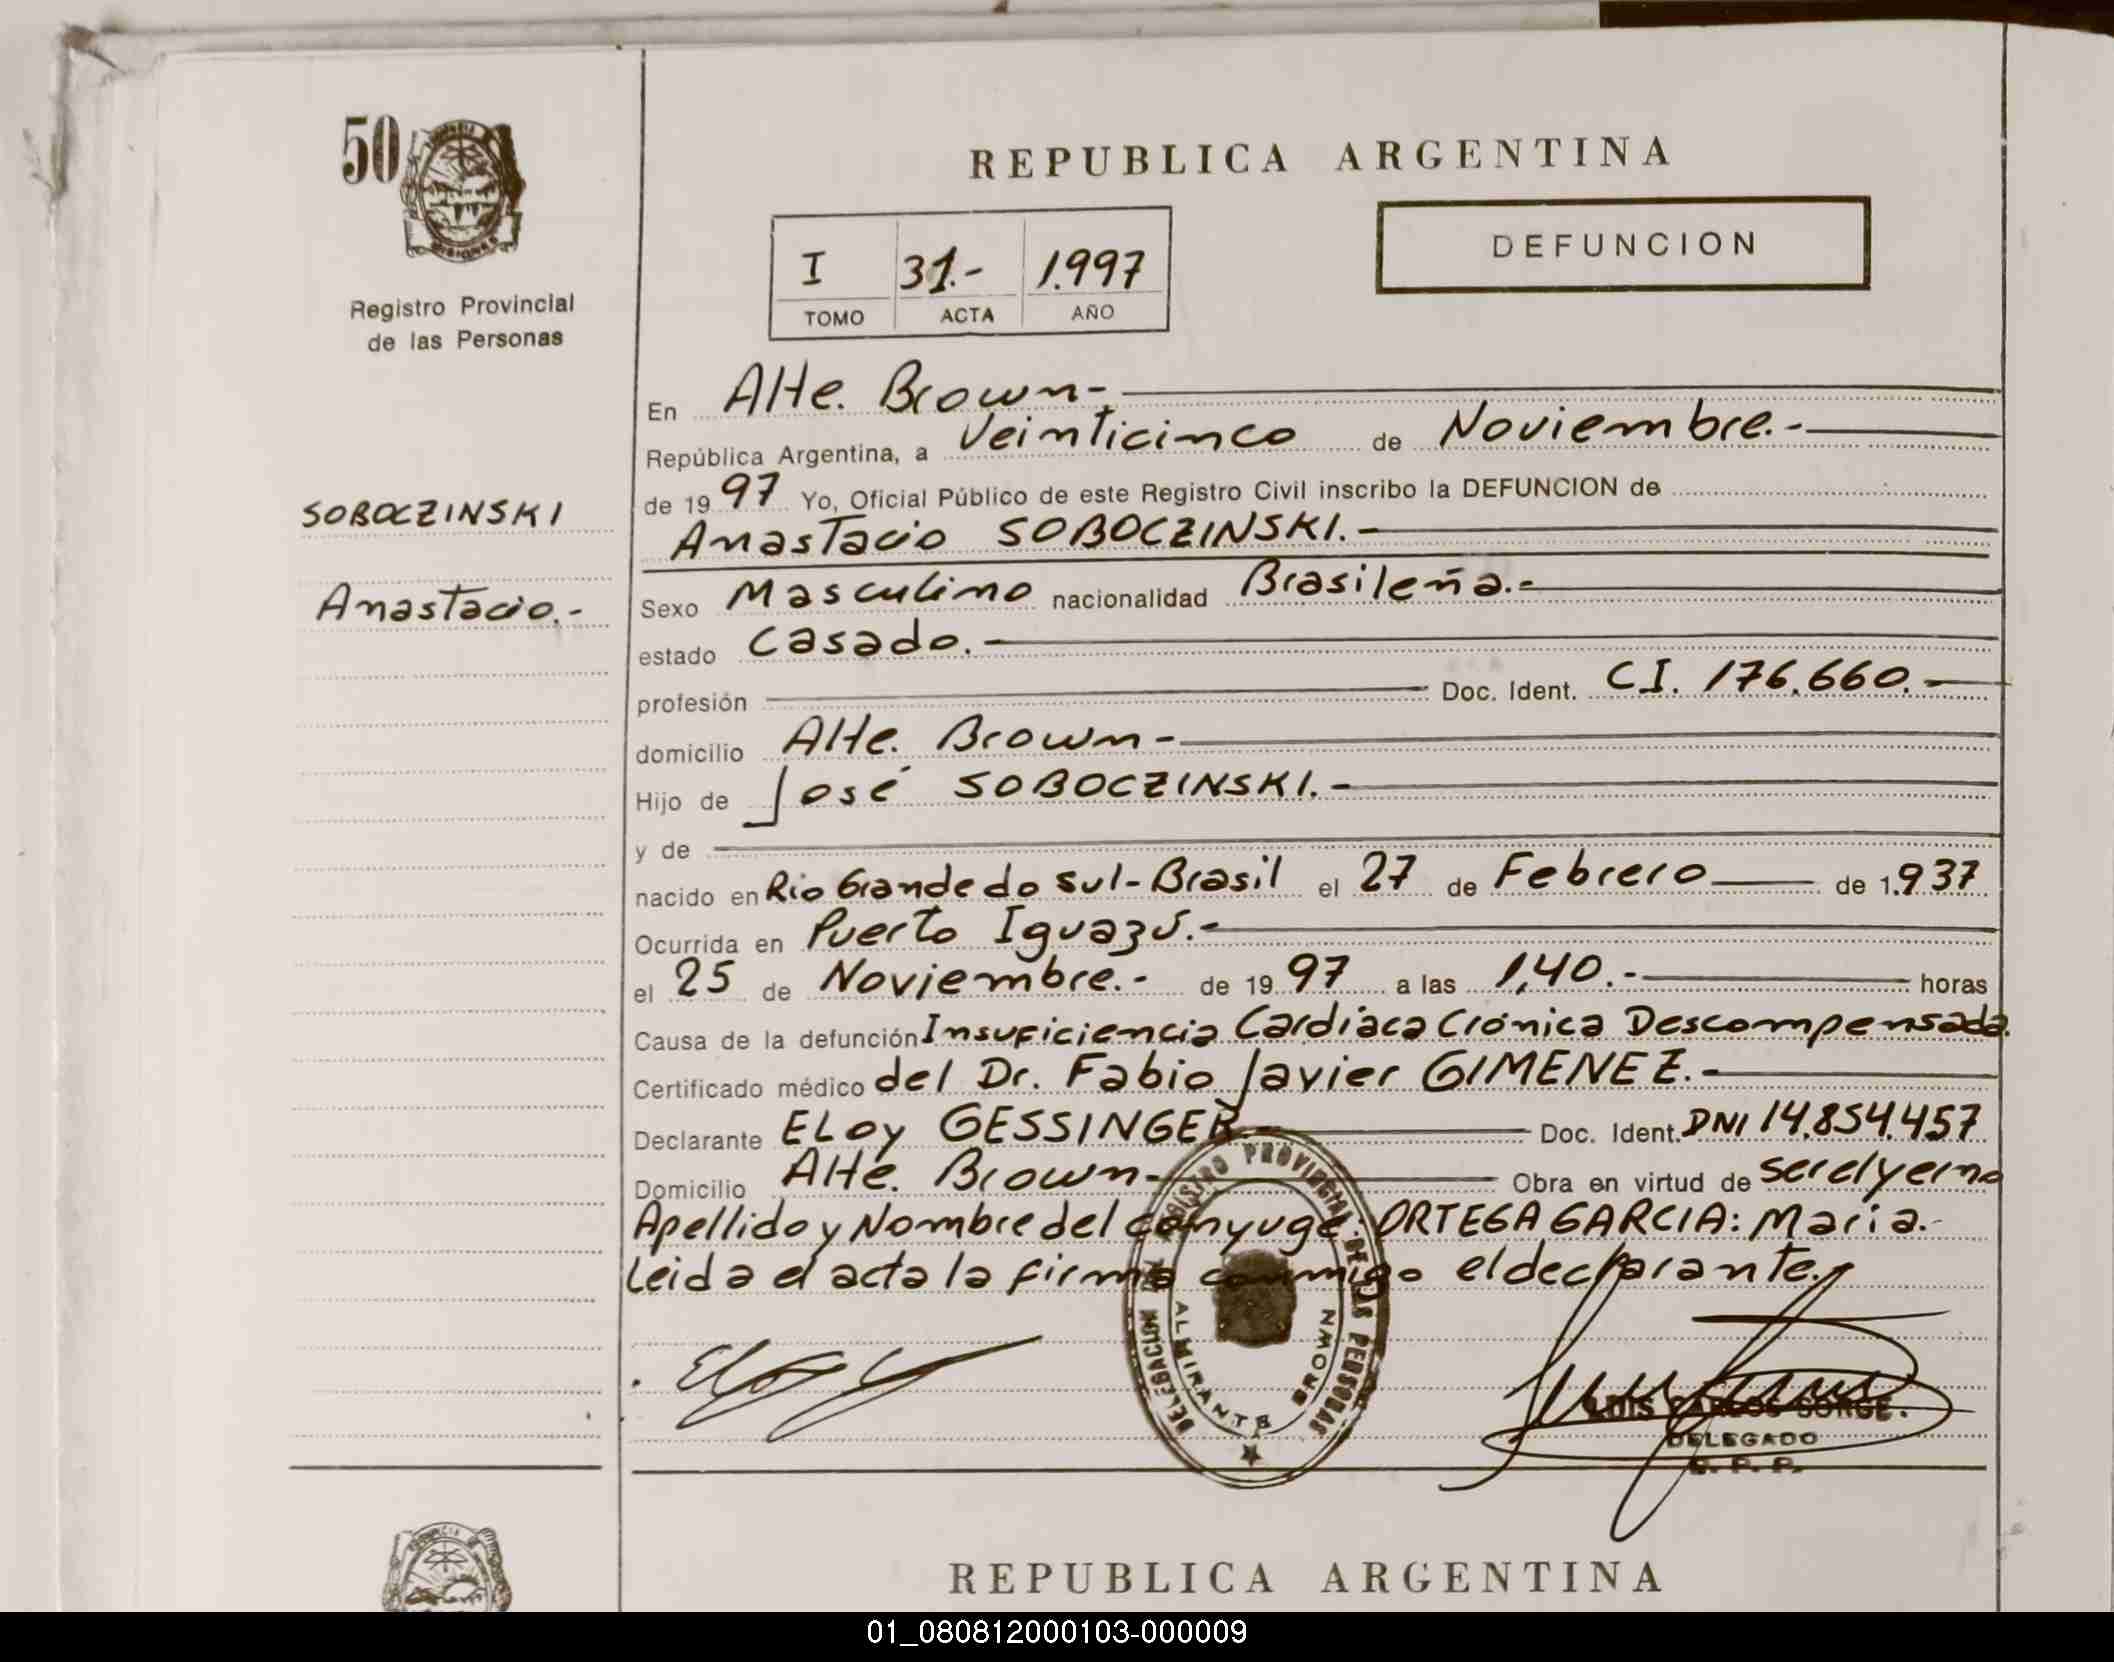 50
PROVINCIA DE
MISIONES
Registro Provincial
de las Personas
SOBOCZINSKI
Anastacio.-
REPUBLICA ARGENTINA
I 31.- 1.997
TOMO ACTA AÑO
DEFUNCION
En Alte. Brown-
República Argentina, a Veinticinco de Noviembre.-
de 1997 Yo, Oficial Público de este Registro Civil inscribo la DEFUNCION de
Anastacio SOBOCZINSKI.-
Sexo Masculino nacionalidad Brasileña.-
estado Casado.-
profesión Doc. Ident. C.I. 176.660.-
domicilio Alte. Brown-
Hijo de José SOBOCZINSKI.-
y de
nacido en Rio Grande do Sul-Brasil el 27 de Febrero de 1.937
Ocurrida en Puerto Iguazú.-
el 25 de Noviembre.- de 1997 a las 1,40.- horas
Causa de la defunción Insuficiencia Cardíaca Crónica Descompensada.
Certificado médico del Dr. Fabio Javier GIMENEZ.-
Declarante ELoy GESSINGER.- Doc. Ident. DNI 14.854.457
Domicilio Alte. Brown- Obra en virtud de ser el yerno
Apellido y Nombre del conyuge: ORTEGA GARCIA: Maria.-
Leida el acta la firma conmigo el declarante.
DELEGACION DEL REGISTRO PROVINCIAL DE LAS PERSONAS
ALMIRANTE BROWN
LUIS CARLOS SORGE.
DELEGADO
R. P. P.
REPUBLICA ARGENTINA
01_080812000103-000009